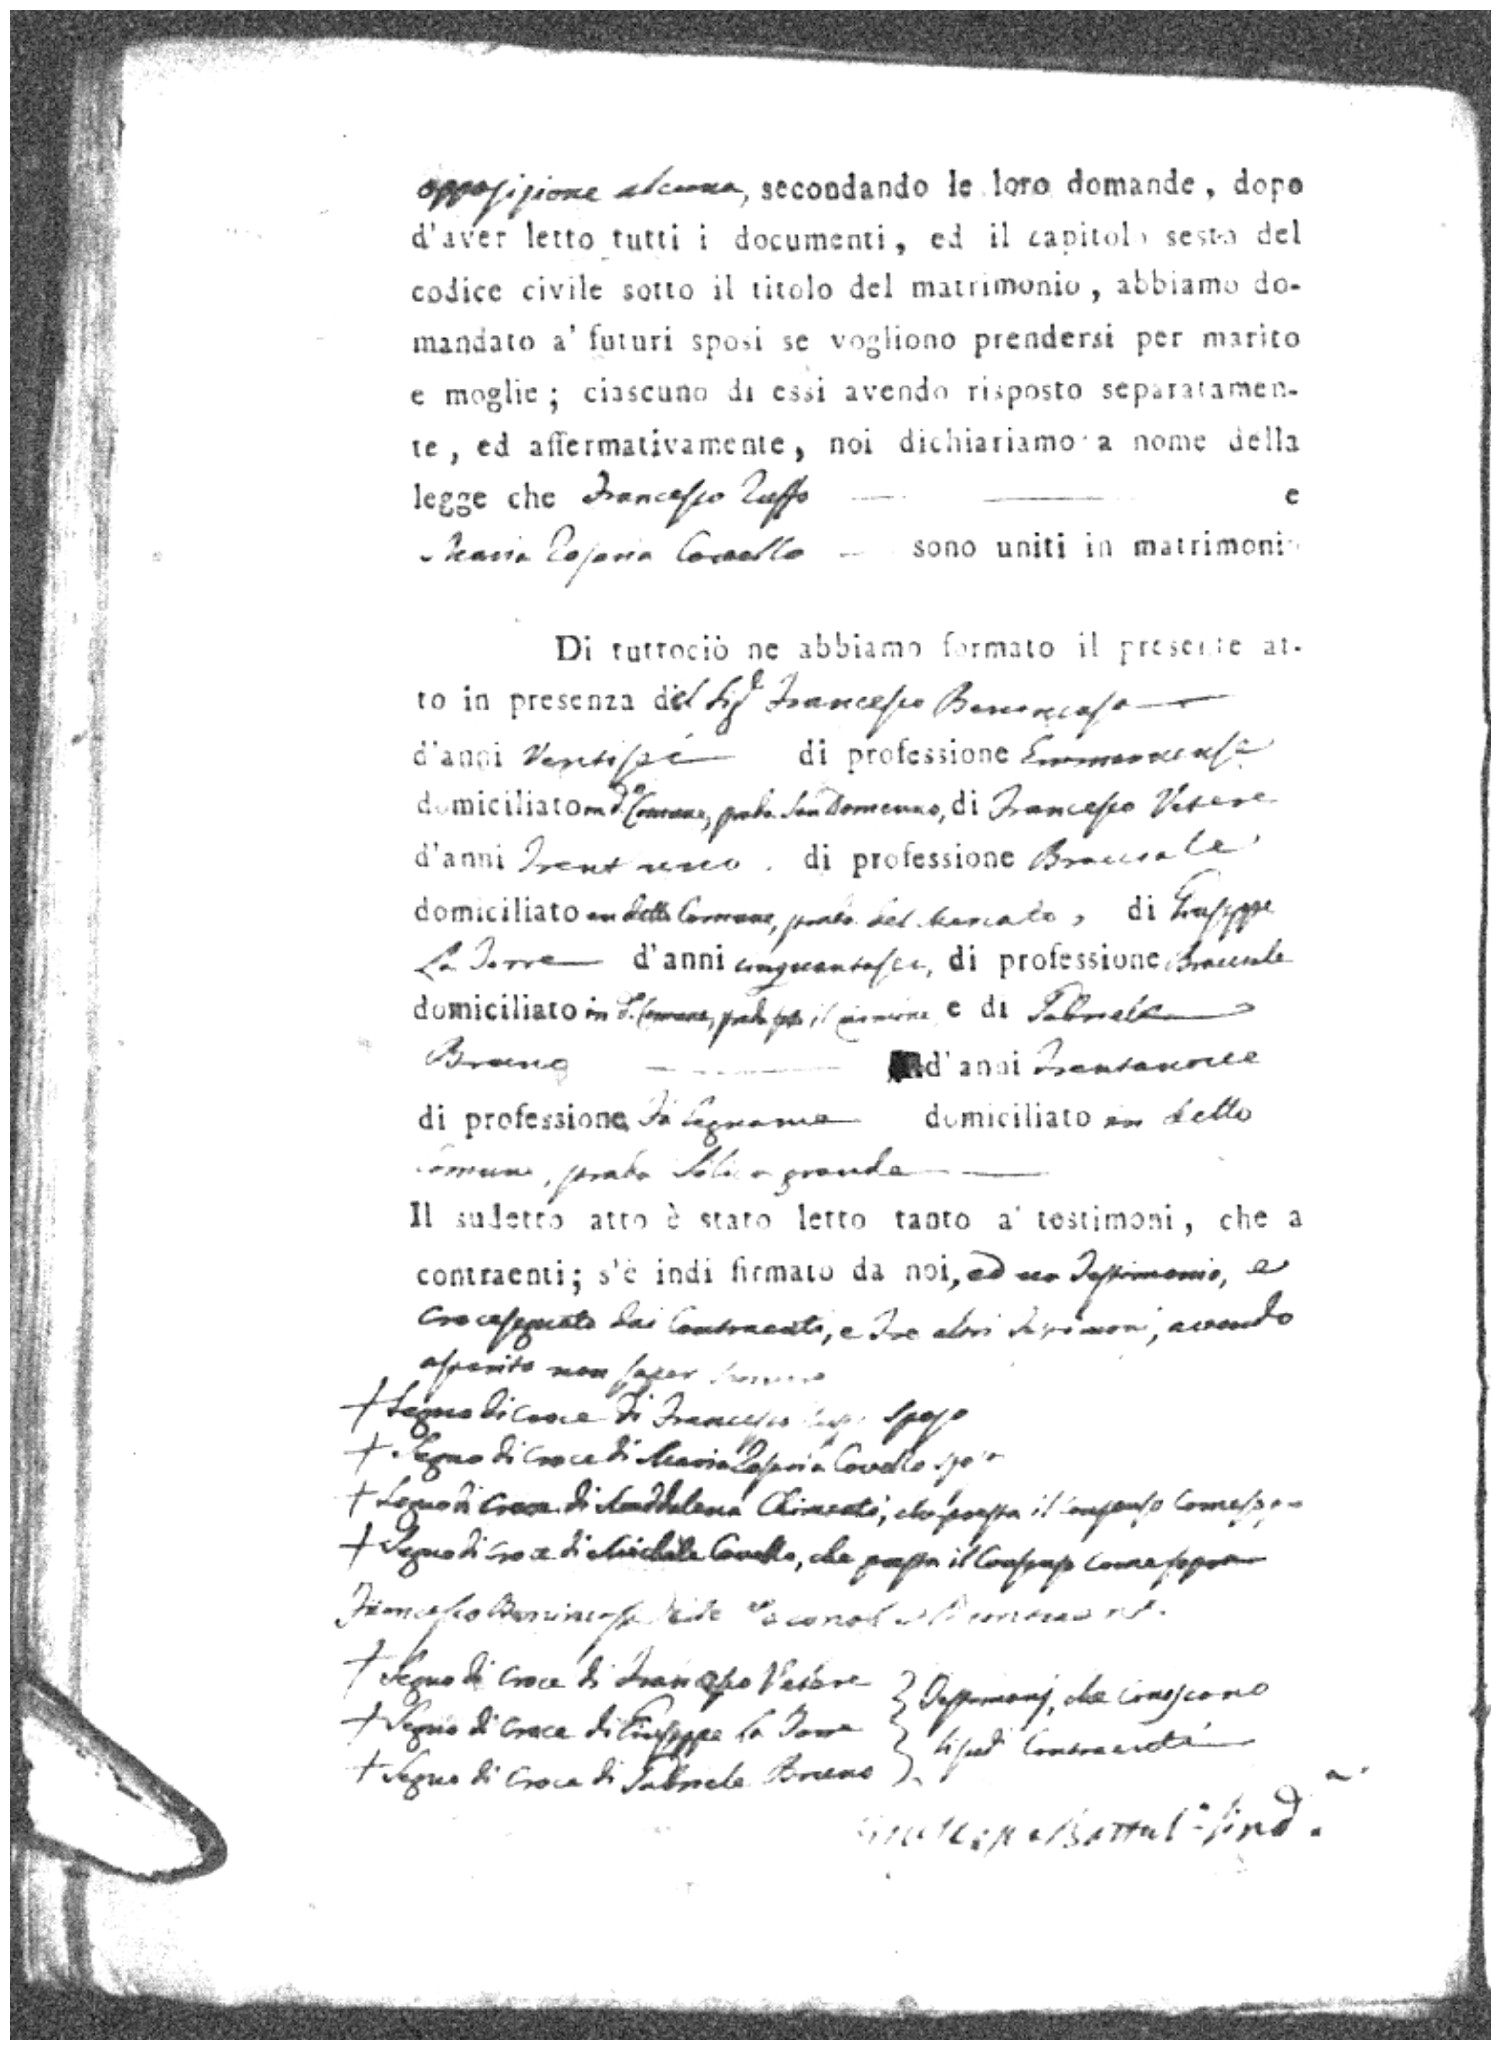 opposizione alcuna, secondando le loro domande, dopo
d'aver letto tutti i documenti, ed il capitolo sesto del
codice civile sotto il titolo del matrimonio, abbiamo do-
mandato a' futuri sposi se vogliono prendersi per marito
e moglie; ciascuno di essi avendo risposto separatamen-
te, ed affermativamente, noi dichiariamo a nome della
legge che Francesco Ruffo e
Maria Rosaria Covello sono uniti in matrimonio
Di tuttociò ne abbiamo formato il presente at-
to in presenza del Sig.r Francesco Benincasa
d'anni Ventisei di professione
domiciliato in d.o Comune, strada San Domenico, di Francesco Vetere
d'anni Trent'uno di professione Bracciale
domiciliato in detto Comune, strada del Mercato, di Giuseppe
La Torre d'anni cinquantasei, di professione Bracciale
domiciliato in d.o Comune, strada il e di Gabriele
Bruno d'anni Trentanove
di professione Falegname domiciliato in detto
Comune, strada grande
Il sudetto atto è stato letto tanto a' testimoni, che a
contraenti; s'è indi firmato da noi, ed un Testimonio, e
Crocesegnato dai Contraenti, e Tre altri Testimoni, avendo
asserito non saper scrivere
+ Segno di Croce di Francesco Sposo
+ Segno di Croce di Maria Rosaria Covello sposa
+ Segno di Croce di Maddalena Chimenti, che presta il Consenso Come sopra
+ Segno di Croce di Michele Covello, che presta il Consenso come sopra
Francesco Benincasa
+ Segno di Croce di Francesco Vetere } Testimonj, che conoscono
+ Segno di Croce di Giuseppe La Torre } li sud.i Contraenti
+ Segno di Croce di Gabriele Bruno }
Sind.o